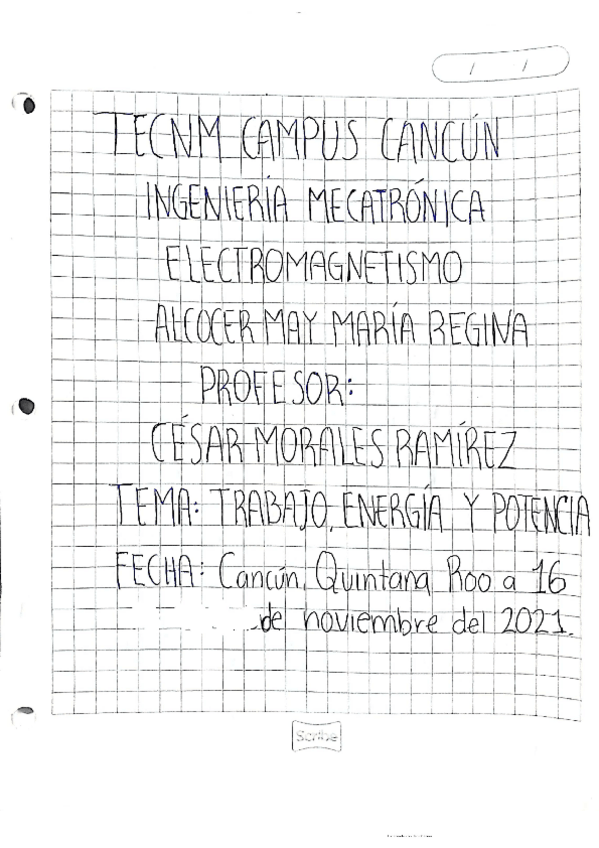 / /
TECNM CAMPUS CANCÚN
INGENIERÍA MECATRÓNICA
ELECTROMAGNETISMO
ALCOCER MAY MARÍA REGINA
PROFESOR:
CÉSAR MORALES RAMÍREZ
TEMA: TRABAJO, ENERGÍA Y POTENCIA
FECHA: Cancún, Quintana Roo a 16
de noviembre del 2021.
Scribe